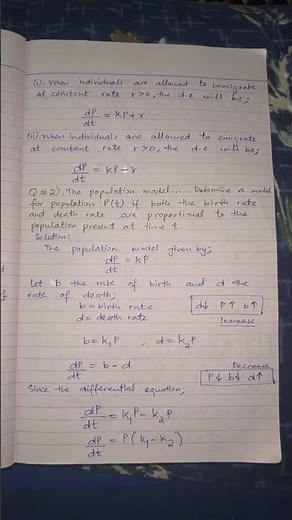 (i). When individuals are allowed to immigrate
at constant rate r>0, the d.e will be;
dP/dt = kP+r
(ii). When individuals are allowed to emigrate
at constant rate r>0, the d.e will be;
dP/dt = kP-r
Q#2). The population model...... Determine a model
for population P(t) if both the birth rate
and death rate are proportional to the
population present at time t.
Solution:
The population model given by;
dP/dt = kP
let b the rate of birth and d the
rate of death;
b = birth rate
d = death rate
d↓ P↑ b↑
Increase
b = k₁P , d = k₂P
dP/dt = b - d
Decrease
P↓ b↓ d↑
Since the differential equation;
dP/dt = k₁P - k₂P
dP/dt = P(k₁ - k₂)